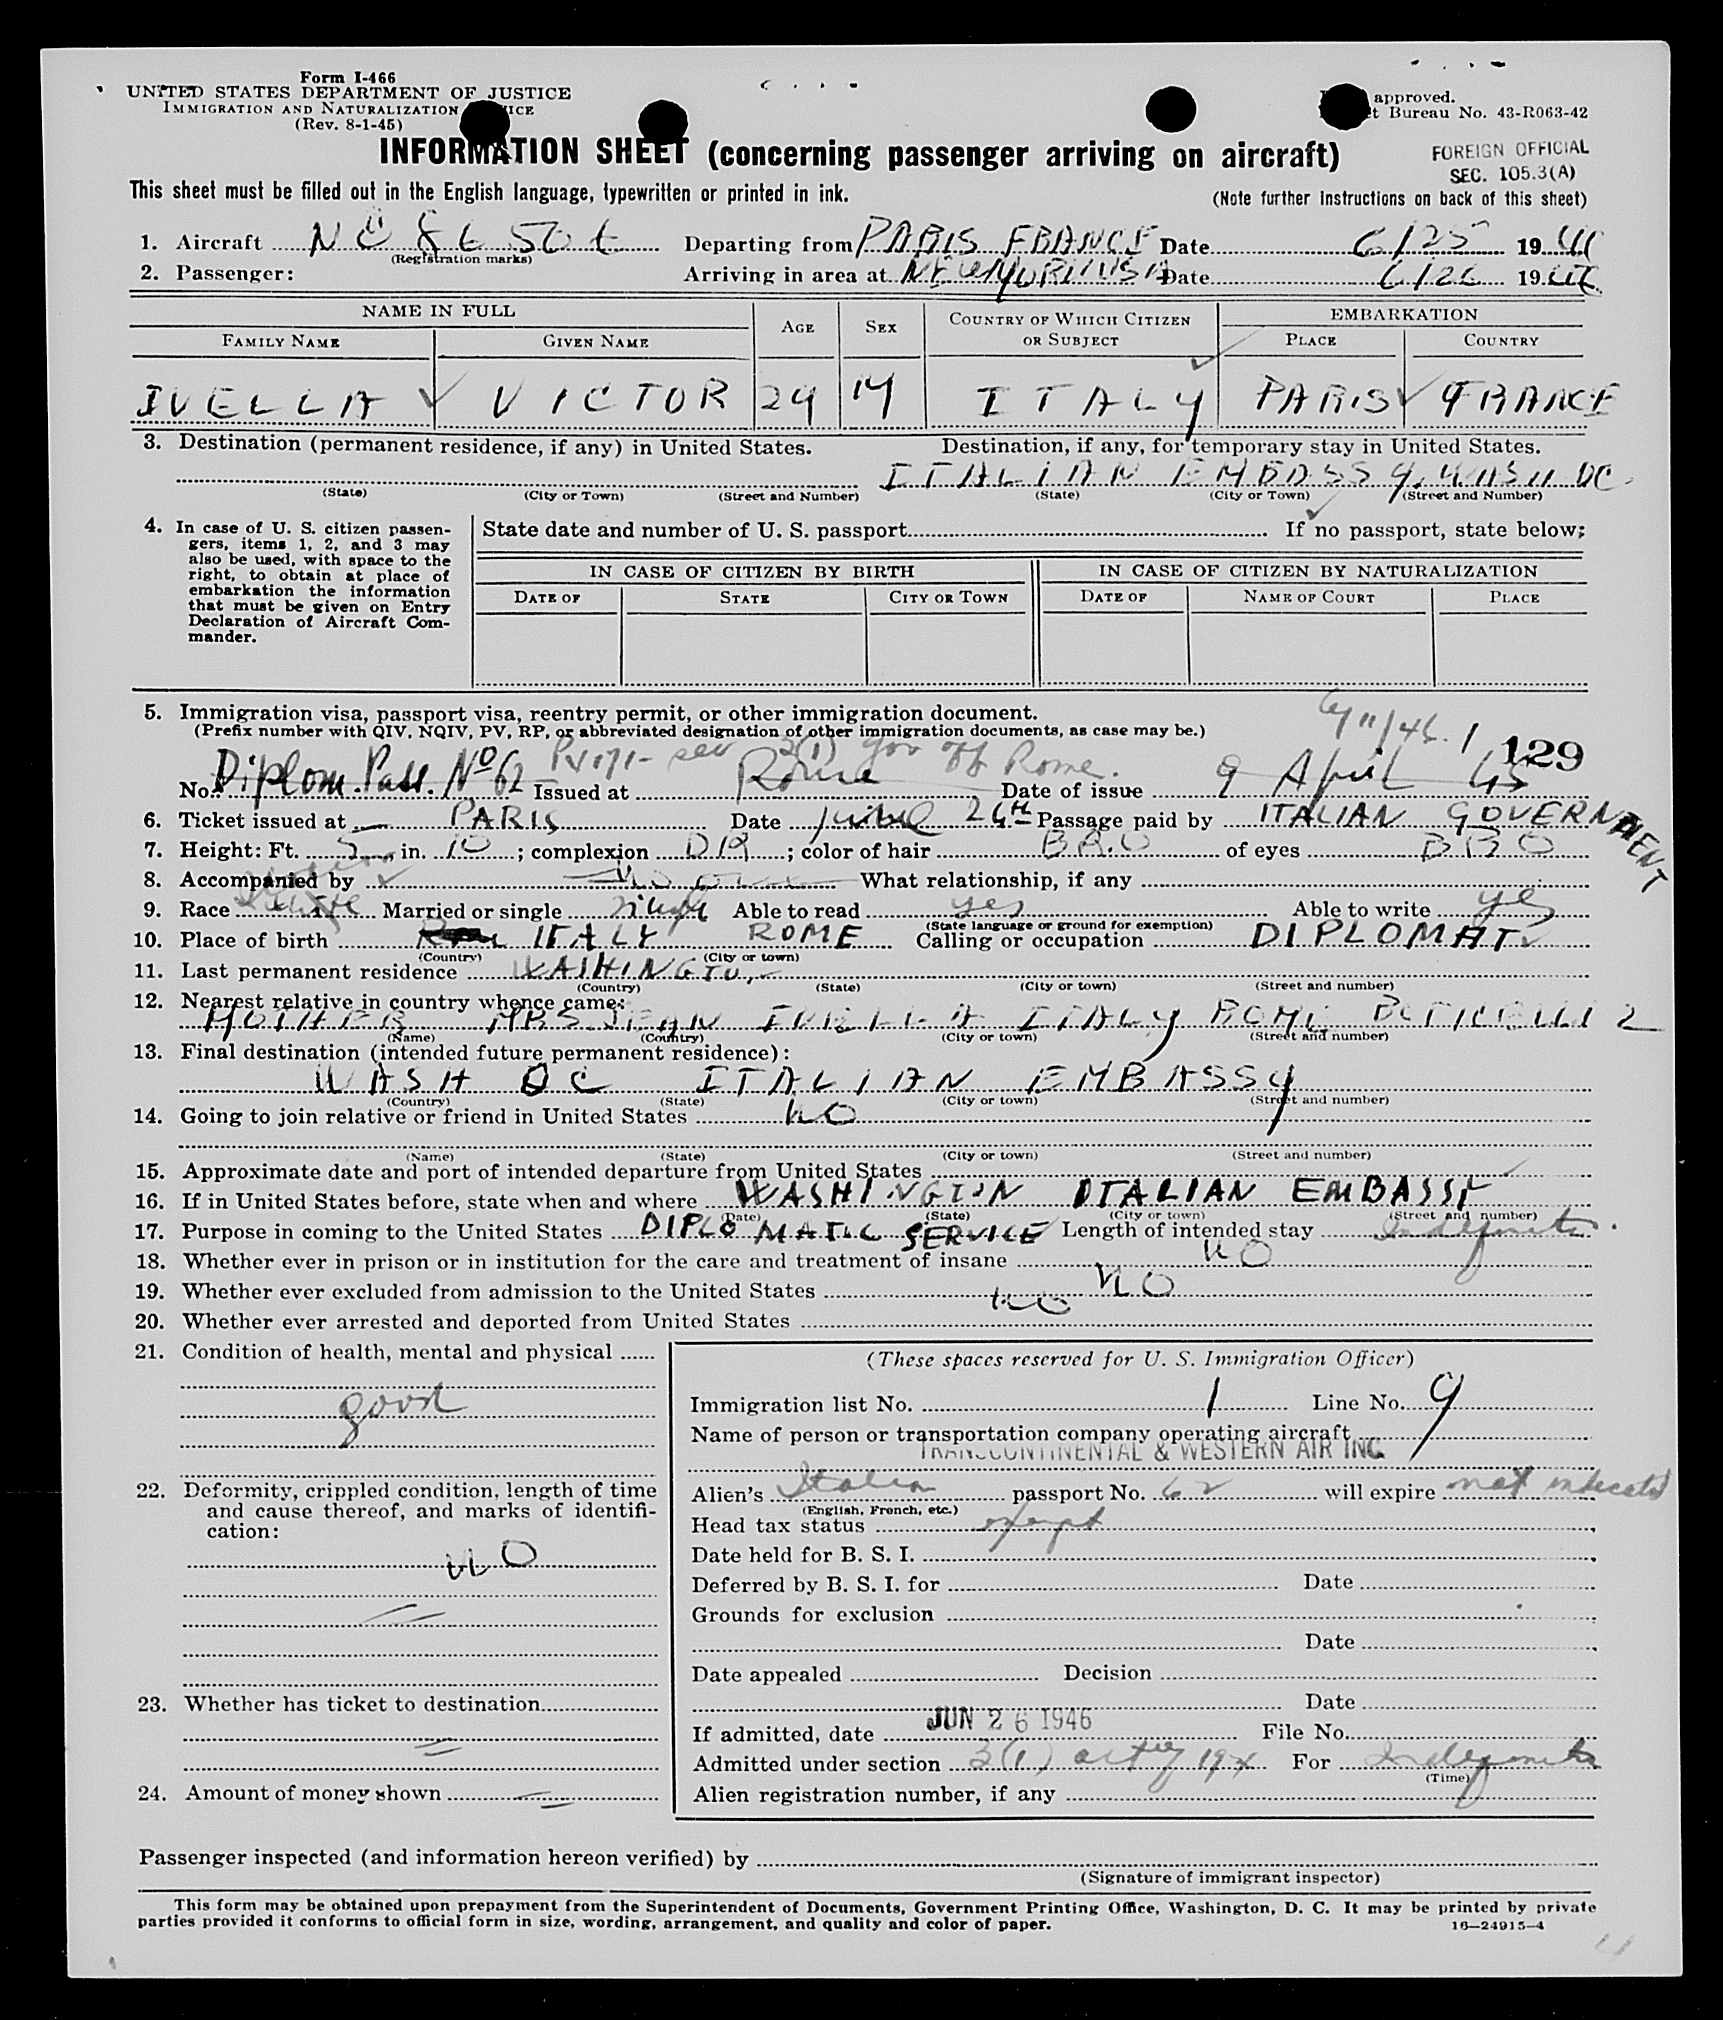 Form I-466
UNITED STATES DEPARTMENT OF JUSTICE
IMMIGRATION AND NATURALIZATION
(Rev. 8-1-45)
approved.
Bureau No. 43-R063-42
INFORMATION SHEET (concerning passenger arriving on aircraft)
FOREIGN OFFICIAL
SEC. 105.3(A)
This sheet must be filled out in the English language, typewritten or printed in ink.
(Note further Instructions on back of this sheet)
1. Aircraft Departing from PARIS FRANCE Date 6/25 19 46
(Registration marks)
2. Passenger: Arriving in area at NEW YORK USA Date 6/26 19 46
NAME IN FULL AGE SEX COUNTRY OF WHICH CITIZEN OR SUBJECT EMBARKATION
FAMILY NAME GIVEN NAME PLACE COUNTRY
IVELLA VICTOR 29 M ITALY PARIS FRANCE
3. Destination (permanent residence, if any) in United States. Destination, if any, for temporary stay in United States.
ITALIAN EMBASSY, WASH DC
(State) (City or Town) (Street and Number) (State) (City or Town) (Street and Number)
4. In case of U. S. citizen passengers, items 1, 2, and 3 may also be used, with space to the right, to obtain at place of embarkation the information that must be given on Entry Declaration of Aircraft Commander.
State date and number of U. S. passport If no passport, state below:
IN CASE OF CITIZEN BY BIRTH IN CASE OF CITIZEN BY NATURALIZATION
DATE OF STATE CITY OR TOWN DATE OF NAME OF COURT PLACE
5. Immigration visa, passport visa, reentry permit, or other immigration document.
(Prefix number with QIV, NQIV, PV, RP, or abbreviated designation of other immigration documents, as case may be.)
3(1) gov off Rome.
129
No. Diplom. Pass. No 62 Issued at Rome Date of issue 9 April 45
6. Ticket issued at PARIS Date 26th Passage paid by ITALIAN GOVERNMENT
7. Height: Ft. 5 in. 10 ; complexion DR ; color of hair BRO of eyes BRO
8. Accompanied by no one What relationship, if any
9. Race Married or single single Able to read yes Able to write yes
(State language or ground for exemption)
10. Place of birth ITALY ROME Calling or occupation DIPLOMAT
(Country) (City or town)
11. Last permanent residence WASHINGTON
(Country) (State) (City or town) (Street and number)
12. Nearest relative in country whence came:
MOTHER MRS JEAN IVELLA ITALY ROME 2
(Name) (Country) (City or town) (Street and number)
13. Final destination (intended future permanent residence):
WASH DC ITALIAN EMBASSY
(Country) (State) (City or town) (Street and number)
14. Going to join relative or friend in United States NO
(Name) (State) (City or town) (Street and number)
15. Approximate date and port of intended departure from United States
16. If in United States before, state when and where WASHINGTON ITALIAN EMBASSY
(Date) (State) (City or town) (Street and number)
17. Purpose in coming to the United States DIPLOMATIC SERVICE Length of intended stay Indefinite.
18. Whether ever in prison or in institution for the care and treatment of insane NO
19. Whether ever excluded from admission to the United States NO
20. Whether ever arrested and deported from United States NO
21. Condition of health, mental and physical
good
22. Deformity, crippled condition, length of time and cause thereof, and marks of identification:
NO
23. Whether has ticket to destination
24. Amount of money shown
(These spaces reserved for U. S. Immigration Officer)
Immigration list No. 1 Line No. 9
Name of person or transportation company operating aircraft
TRANSCONTINENTAL & WESTERN AIR INC.
Alien's Italian passport No. 62 will expire not indicated
(English, French, etc.)
Head tax status exempt
Date held for B. S. I.
Deferred by B. S. I. for Date
Grounds for exclusion
Date
Date appealed Decision
Date
If admitted, date JUN 26 1946 File No.
Admitted under section 3(1) For Indefinite
(Time)
Alien registration number, if any
Passenger inspected (and information hereon verified) by
(Signature of immigrant inspector)
This form may be obtained upon prepayment from the Superintendent of Documents, Government Printing Office, Washington, D. C. It may be printed by private
parties provided it conforms to official form in size, wording, arrangement, and quality and color of paper. 16—24915-4